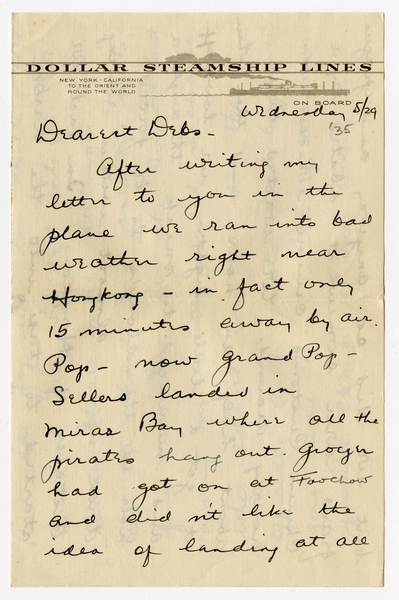 DOLLAR STEAMSHIP LINES
NEW YORK - CALIFORNIA
TO THE ORIENT AND
ROUND THE WORLD
ON BOARD
Wednesday 5/29
'35
Dearest Debs -
After writing my
letter to you in the
plane we ran into bad
weather right near
Hongkong - in fact only
15 minutes away by air.
Pop - now Grand Pop -
Sellers landed in
Miras Bay where all the
pirates hang out. Groeger
had got on at Foochow
and did n't like the
idea of landing at all